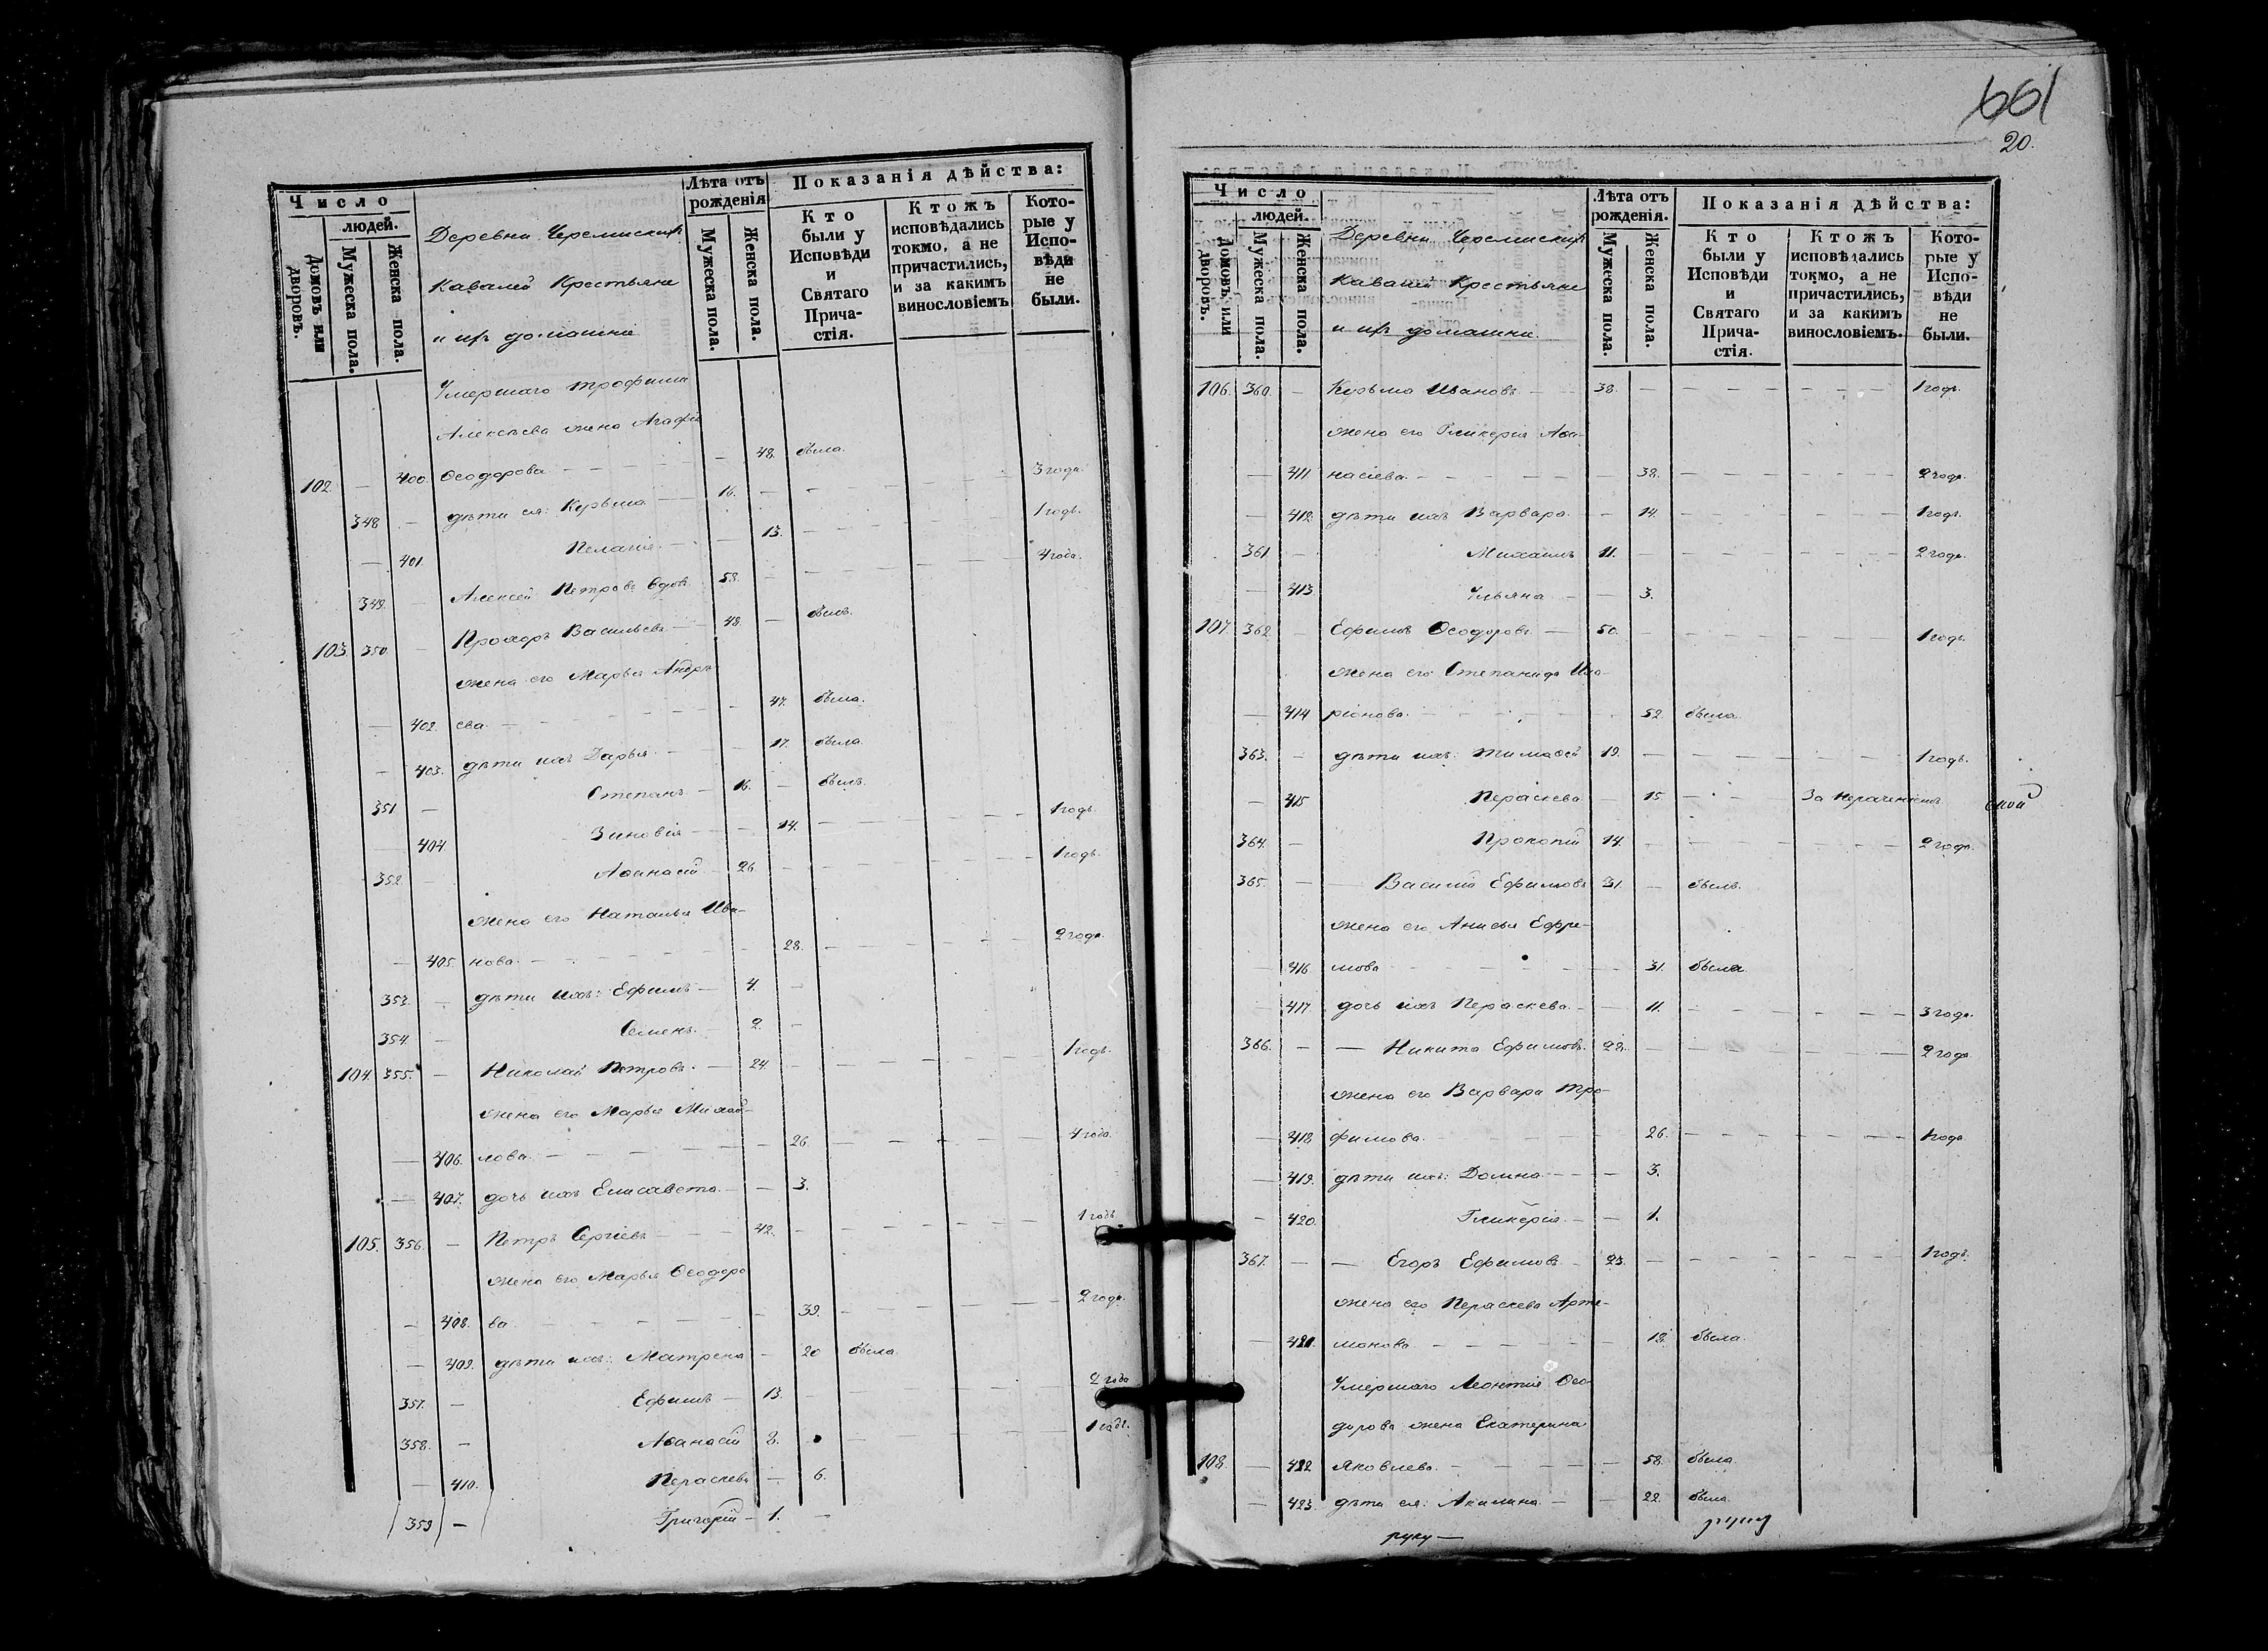 661
20.
Число
людей.
Домовъ или дворовъ.
Мужеска пола.
Женска пола.
Деревни Черемиских
Кавалей Крестьяне
и ихъ домашніе
Лѣта отъ рожденія
Мужеска пола.
Женска пола.
Показанія дѣйства:
Кто были у Исповѣди и Святаго Причастія.
Ктожъ исповѣдались токмо, а не причастились, и за какимъ винословіемъ
Которые у Исповѣди не были.
Умершаго Трофима
Алексѣева жена Агафія
102. — 400 Ѳеодорова — 48. была.
348 — дѣти ея: Кузьма — 16. — 3 года.
— 401. Пелагія — 13. — 1 годъ.
349. — Алексей Петровъ вдовъ 58. — 4 года.
103. 350. — Прохоръ Васильевъ — 48. — былъ.
жена его Марья Андрѣ-
— 402. ева — 47. была.
— 403. дѣти ихъ Дарья — 17. была
351 — Степанъ — 16. — былъ.
— 404. Зиновія — 14. — 1 годъ.
352. — Аѳанасій 26 — 1 годъ.
жена его Наталья Ива-
— 405. нова — 28. — 2 года.
353. — дѣти ихъ: Ефимъ — 4. —
354. — Семенъ — 2. —
104. 355. — Николай Петровъ — 24. — 1 годъ.
жена его Марья Михай-
— 406. лова — 26. — 4 года.
— 407. дочь ихъ Елисавета — 3.
105. 356. — Петръ Сергіевъ — 42. — 1 годъ
жена его Марья Ѳеодоро
— 408. ва — 39. — 2 года.
— 409. дѣти ихъ: Матрена — 20 была.
357. — Ефимъ — 13. — 2 года
358. — Аѳанасій 8. — 1 годъ.
— 410. Пераскева — 6.
359 — Григорій — 1. —
Число
людей.
Домовъ или дворовъ.
Мужеска пола.
Женска пола.
Деревни Черемиских
Кавалей Крестьяне
и ихъ домашніе.
Лѣта отъ рожденія.
Мужеска пола.
Женска пола.
Показанія дѣйства:
Кто были у Исповѣди и Святаго Причастія.
Ктожъ исповѣдались токмо, а не причастились, и за какимъ винословіемъ.
Которые у Исповѣди не были.
106. 360. — Кузьма Ивановъ — 38. — 1 годъ.
жена его Гликерія Аѳа-
— 411 насіева — 38. — 2 года.
— 412. дѣти ихъ Варвара — 14. — 1 годъ.
361 — Михаилъ 11. — 2 года.
— 413. Ульяна — 3.
107. 362. — Ефимъ Ѳеодоровъ — 50. — 1 годъ.
жена его Степанида Ила-
— 414 ріонова — 52. была.
363. — дѣти ихъ: Тимоѳей 19. — 1 годъ.
— 415 Пераскева — 15. — За нераченіемъ.
364. — Прокопій 14. — 2 года.
365. — Василій Ефимовъ 31. — былъ.
жена его Анисья Ефре-
— 416. мова — 31. была
— 417. дочь ихъ Пераскева — 11. — 3 года.
366. — Никита Ефимовъ. 28. — 2 года
жена его Варвара Тро-
— 418 фимова — 26. — 1 годъ
— 419. дѣти ихъ: Домна — 3.
— 420. Гликерія — 1.
367. — Егоръ Ефимовъ — 23. — 1 годъ.
жена его Пераскева Арте-
— 421. монова — 18. была.
Умершаго Леонтія Ѳео-
дорова жена Екатерина
108. — 422 Яковлева — 58. была.
— 423. дѣти ея: Акилина — 22. была
руку —